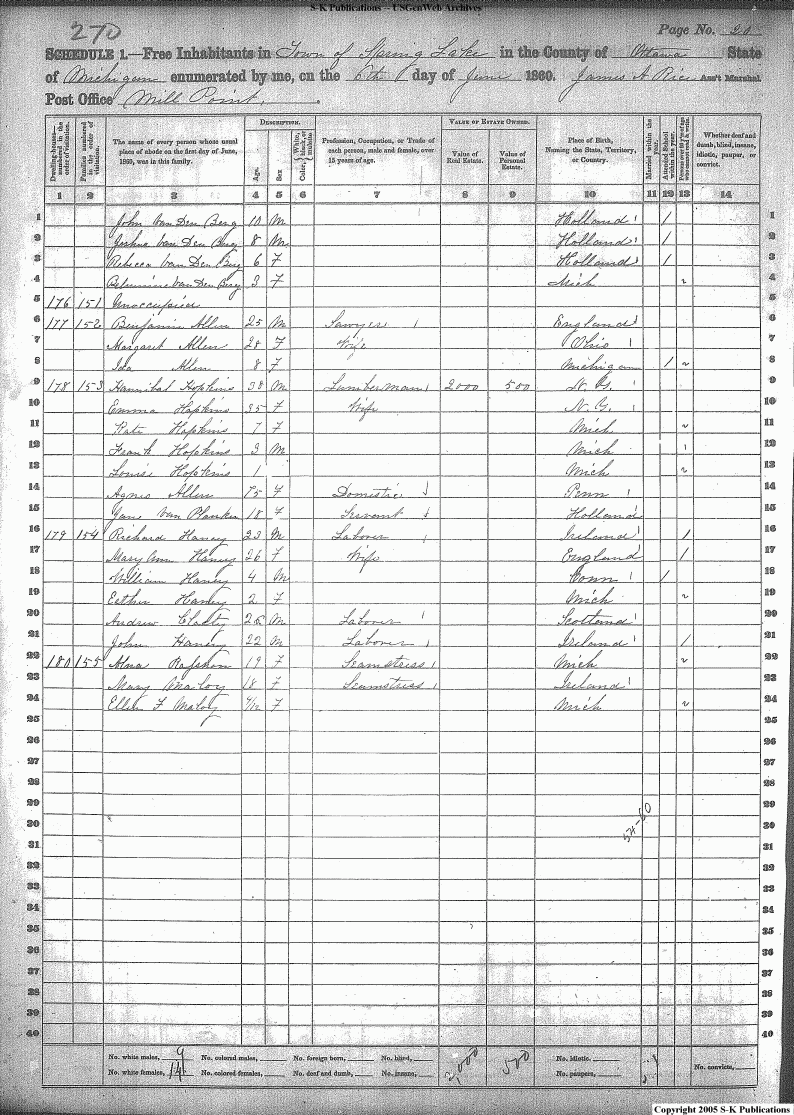 S-K Publications -- USGenWeb Archives
270
Page No. 20
SCHEDULE 1.—Free Inhabitants in Town of Spring Lake in the County of Ottawa State
of Michigan enumerated by me, on the 6th day of June 1860. James A Rice Ass't Marshal
Post Office Mill Point.
Dwelling-houses—numbered in the order of visitation.
Families numbered in the order of visitation.
The name of every person whose usual place of abode on the first day of June, 1860, was in this family.
DESCRIPTION.
Age.
Sex
Color, {White, black, or mulatto
Profession, Occupation, or Trade of each person, male and female, over 15 years of age.
VALUE OF ESTATE OWNED.
Value of Real Estate.
Value of Personal Estate.
Place of Birth, Naming the State, Territory, or Country.
Married within the year.
Attended School within the year.
Persons over 20 y'rs of age who cannot read & write.
Whether deaf and dumb, blind, insane, idiotic, pauper, or convict.
1 2 3 4 5 6 7 8 9 10 11 12 13 14
1 John Van Den Berg 10 M Holland / 1
2 Joshua Van Den Berg 8 M Holland / 2
3 Rebecca Van Den Berg 6 F Holland / 3
4 Van Den Berg 3 F Mich 4
5 176 151 Unoccupied 5
6 177 152 Benjamin Allen 25 M Sawyer England 6
7 Margaret Allen 28 F Wife Ohio 7
8 Ida Allen 8 F Michigan / 8
9 178 153 Hannibal Hopkins 38 M Lumberman 2000 500 N. Y. 9
10 Emma Hopkins 35 F Wife N. Y. 10
11 Kate Hopkins 7 F Mich 11
12 Frank Hopkins 3 M Mich 12
13 Louise Hopkins 1 Mich 13
14 Agnes Allen 75 F Domestic Penn 14
15 Jane Van Planken 18 F Servant Holland 15
16 179 154 Richard Haney 23 M Laborer Ireland / 16
17 Mary Ann Haney 26 F Wife England / 17
18 William Haney 4 M Conn / 18
19 Esther Haney 2 F Mich 19
20 Andrew M Laborer Scotland 20
21 John Haney 22 M Laborer Ireland / 21
22 180 155 Alma 19 F Seamstress Mich 22
23 Mary Maloy 18 F Seamstress Ireland 23
24 Ellen F Maloy F Mich 24
25 25
26 26
27 27
28 28
29 29
30 30
31 31
32 32
33 33
34 34
35 35
36 36
37 37
38 38
39 39
40 40
No. white males, 9 No. colored males, No. foreign born, No. blind, 2,000 500 No. idiotic.
No. white females, 14 No. colored females, No. deaf and dumb, No. insane, No. paupers, No. convicts,
Copyright 2005 S-K Publications